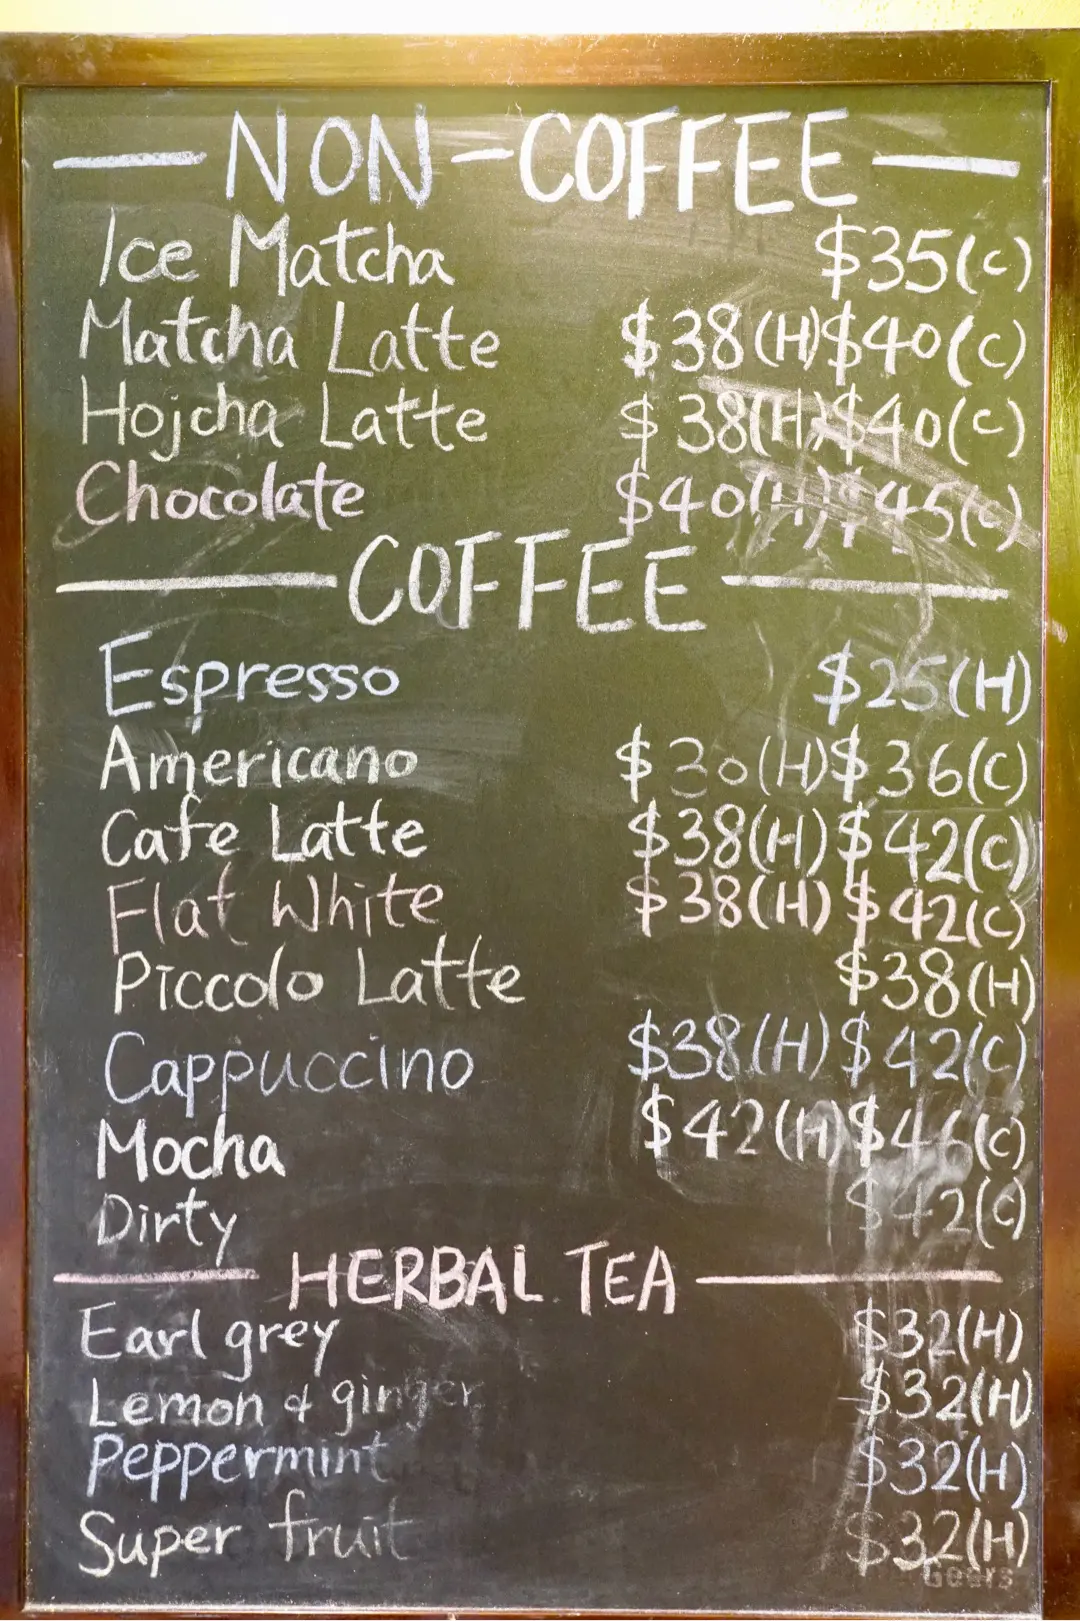 NON-COFFEE
Ice Matcha $35(C)
Matcha Latte $38(H) $40(C)
Hojcha Latte $38(H) $40(C)
Chocolate $40(H) $45(C)
COFFEE
Espresso $25(H)
Americano $30(H) $36(C)
Cafe Latte $38(H) $42(C)
Flat White $38(H) $42(C)
Piccolo Latte $38(H)
Cappuccino $38(H) $42(C)
Mocha $42(H) $46(C)
Dirty $42(C)
HERBAL TEA
Earl grey $32(H)
Lemon & ginger $32(H)
Peppermint $32(H)
Super fruit $32(H)
Geers